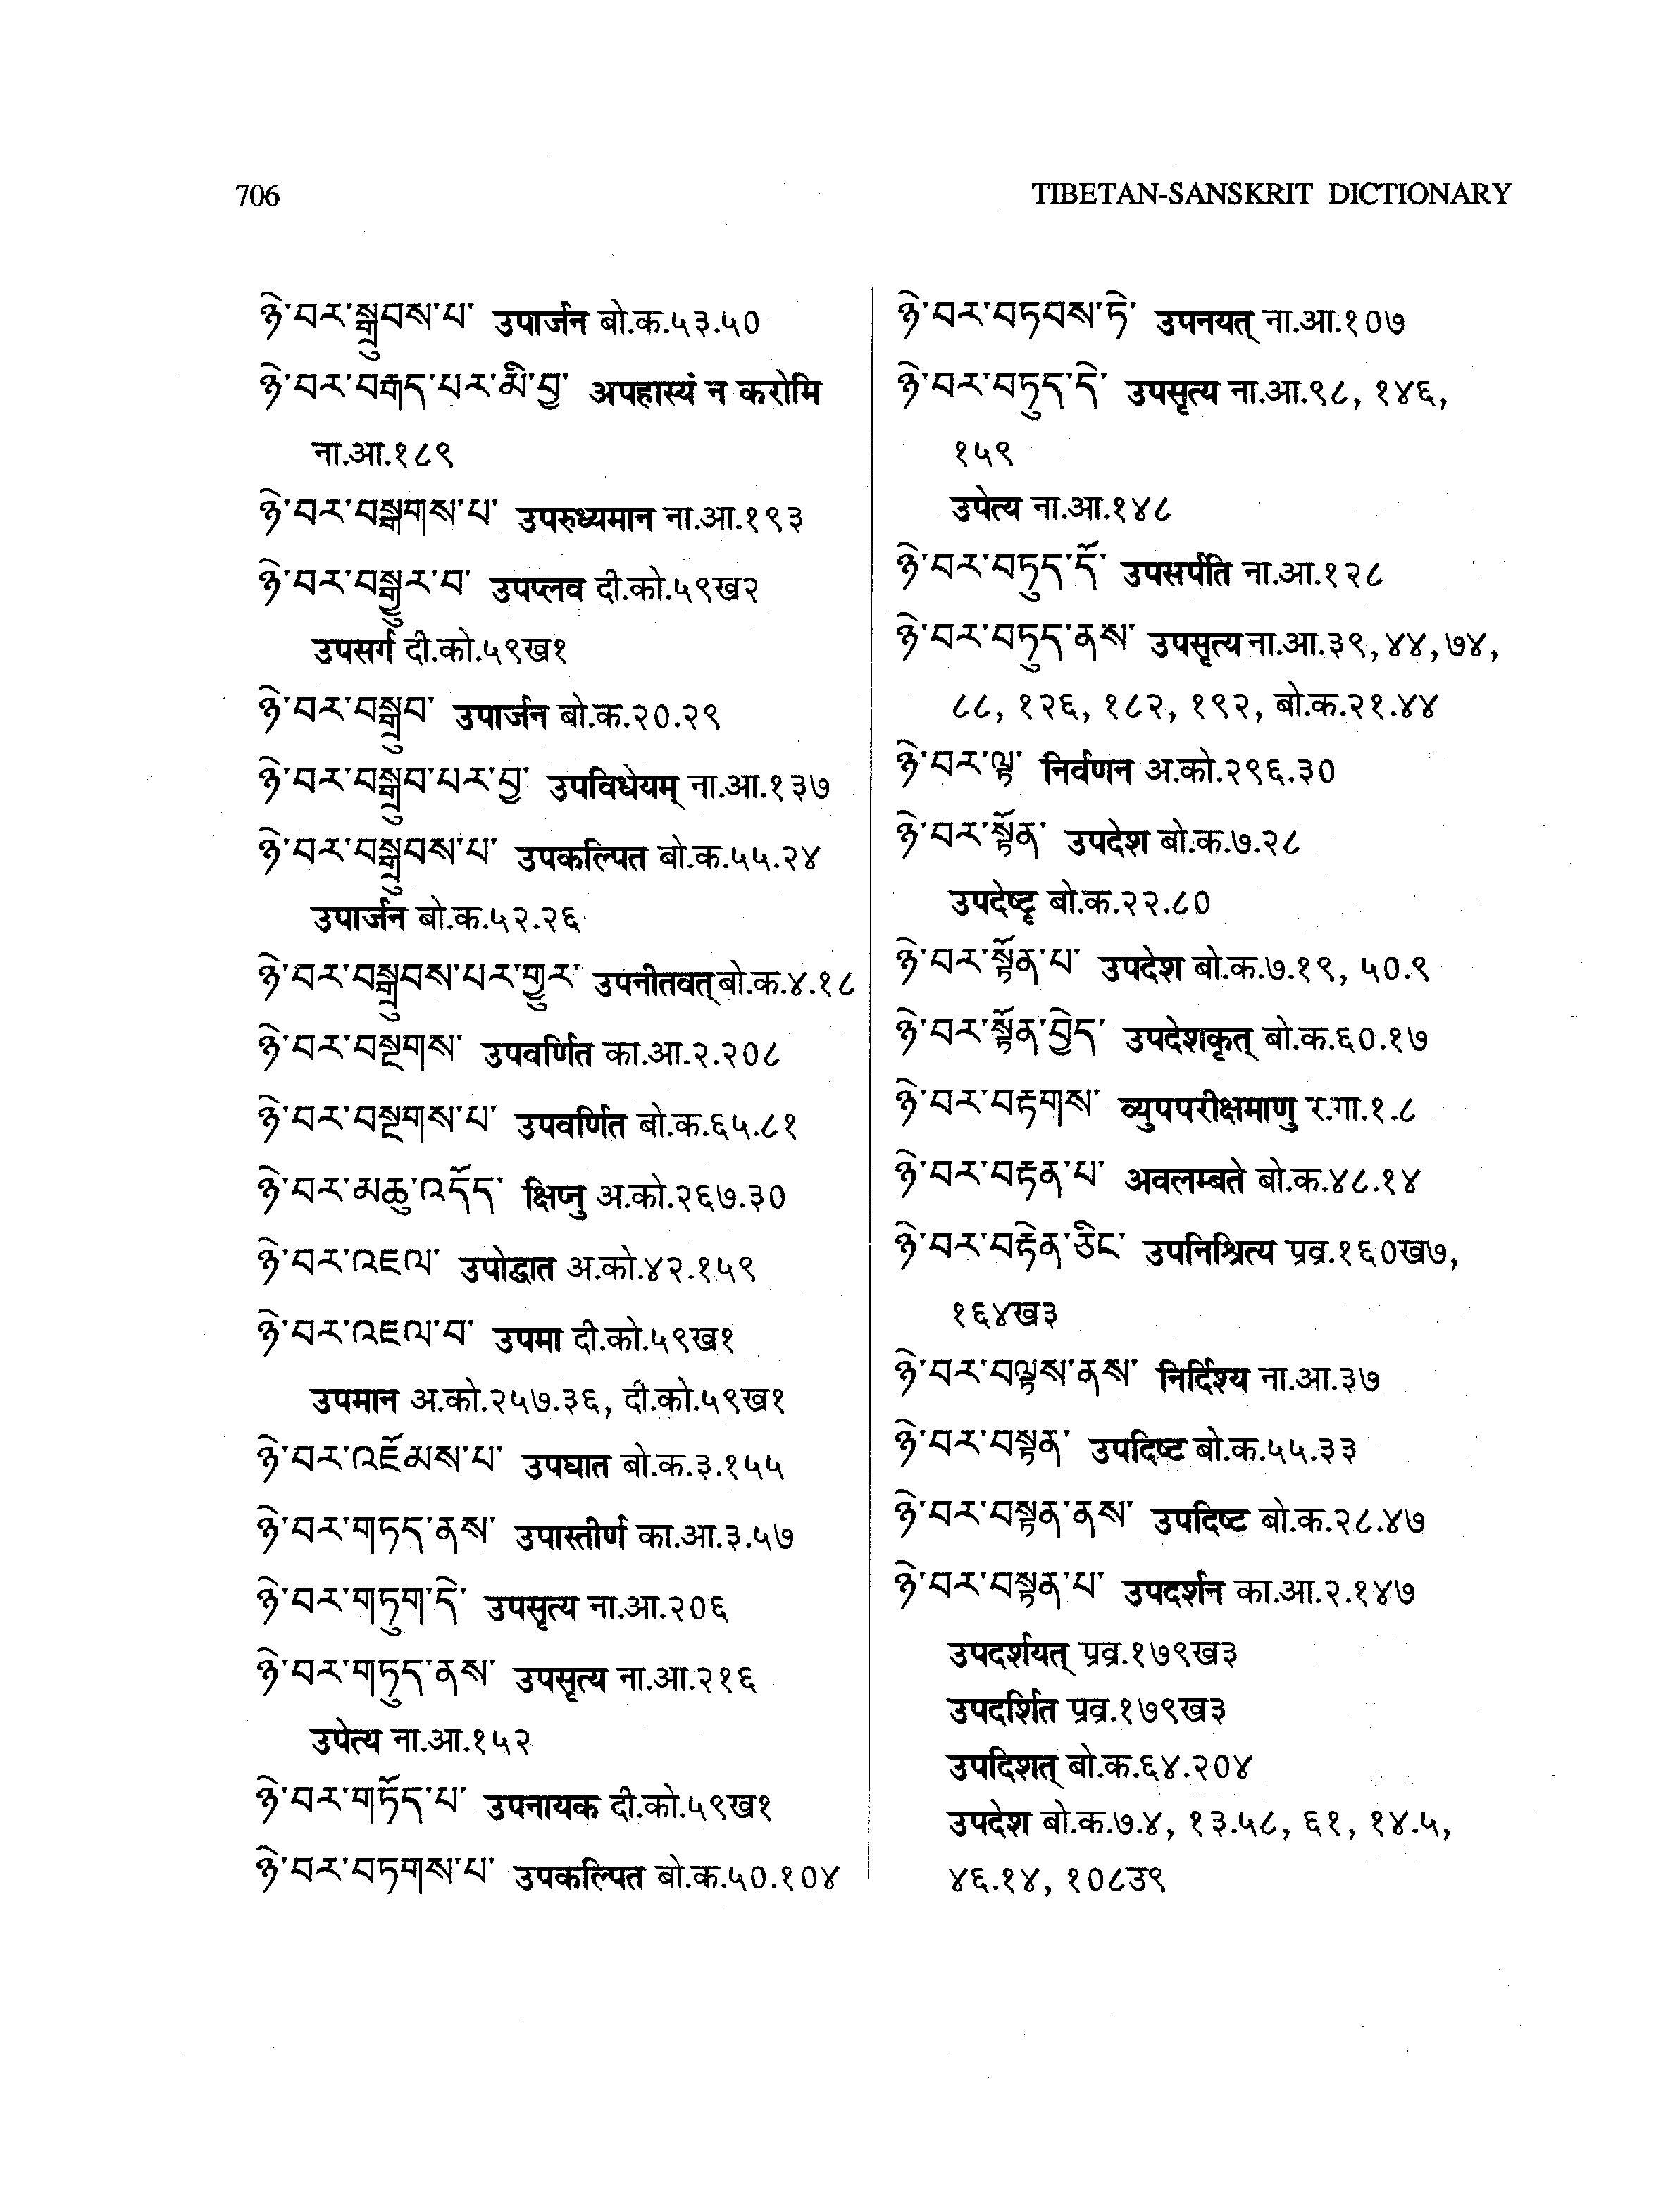 706
TIBETAN-SANSKRIT DICTIONARY
ཉེ་བར་སྒྲུབས་པ་ उपार्जन बो.क.५३.५०
ཉེ་བར་བརྒད་པར་མི་བྱ་ अपहास्यं न करोमि
ना.आ.१८९
ཉེ་བར་བསྒྲགས་པ་ उपरुध्यमान ना.आ.१९३
ཉེ་བར་བསྒྱུར་བ་ उपप्लव दी.को.५९ख२
उपसर्ग दी.को.५९ख१
ཉེ་བར་བསྒྲུབ་ उपार्जन बो.क.२०.२९
ཉེ་བར་བསྒྲུབ་པར་བྱ་ उपविधेयम् ना.आ.१३७
ཉེ་བར་བསྒྲུབས་པ་ उपकल्पित बो.क.५५.२४
उपार्जन बो.क.५२.२६
ཉེ་བར་བསྒྲུབས་པར་གྱུར་ उपनीतवत् बो.क.४.१८
ཉེ་བར་བསྔགས་ उपवर्णित का.आ.२.२०८
ཉེ་བར་བསྔགས་པ་ उपवर्णित बो.क.६५.८१
ཉེ་བར་མཆུ་འདོད་ क्षिप्नु अ.को.२६७.३०
ཉེ་བར་འཇལ་ उपोद्घात अ.को.४२.१५९
ཉེ་བར་འཇལ་བ་ उपमा दी.को.५९ख१
उपमान अ.को.२५७.३६, दी.को.५९ख१
ཉེ་བར་འཇོམས་པ་ उपघात बो.क.३.१५५
ཉེ་བར་གཏད་ནས་ उपास्तीर्ण का.आ.३.५७
ཉེ་བར་གཏུག་དེ་ उपसृत्य ना.आ.२०६
ཉེ་བར་གཏུད་ནས་ उपसृत्य ना.आ.२१६
उपेत्य ना.आ.१५२
ཉེ་བར་གཏོད་པ་ उपनायक दी.को.५९ख१
ཉེ་བར་བཏགས་པ་ उपकल्पित बो.क.५०.१०४
ཉེ་བར་བཏབས་ཏེ་ उपनयत् ना.आ.१०७
ཉེ་བར་བཏུད་དེ་ उपसृत्य ना.आ.९८, १४६,
१५९
उपेत्य ना.आ.१४८
ཉེ་བར་བཏུད་དོ་ उपसर्पति ना.आ.१२८
ཉེ་བར་བཏུད་ནས་ उपसृत्य ना.आ.३९, ४४, ७४,
८८, १२६, १८२, १९२, बो.क.२१.४४
ཉེ་བར་ལྟ་ निर्वणन अ.को.२९६.३०
ཉེ་བར་སྟོན་ उपदेश बो.क.७.२८
उपदेष्टृ बो.क.२२.८०
ཉེ་བར་སྟོན་པ་ उपदेश बो.क.७.१९, ५०.९
ཉེ་བར་སྟོན་བྱེད་ उपदेशकृत् बो.क.६०.१७
ཉེ་བར་བརྟགས་ व्युपपरीक्षमाणु र.गा.१.८
ཉེ་བར་བརྟན་པ་ अवलम्बते बो.क.४८.१४
ཉེ་བར་བརྟེན་ཅིང་ उपनिश्रित्य प्रव्र.१६०ख७,
१६४ख३
ཉེ་བར་བལྟས་ནས་ निर्दिश्य ना.आ.३७
ཉེ་བར་བསྟན་ उपदिष्ट बो.क.५५.३३
ཉེ་བར་བསྟན་ནས་ उपदिष्ट बो.क.२८.४७
ཉེ་བར་བསྟན་པ་ उपदर्शन का.आ.२.१४७
उपदर्शयत् प्रव्र.१७९ख३
उपदर्शित प्रव्र.१७९ख३
उपदिशत् बो.क.६४.२०४
उपदेश बो.क.७.४, १३.५८, ६१, १४.५,
४६.१४, १०८उ९